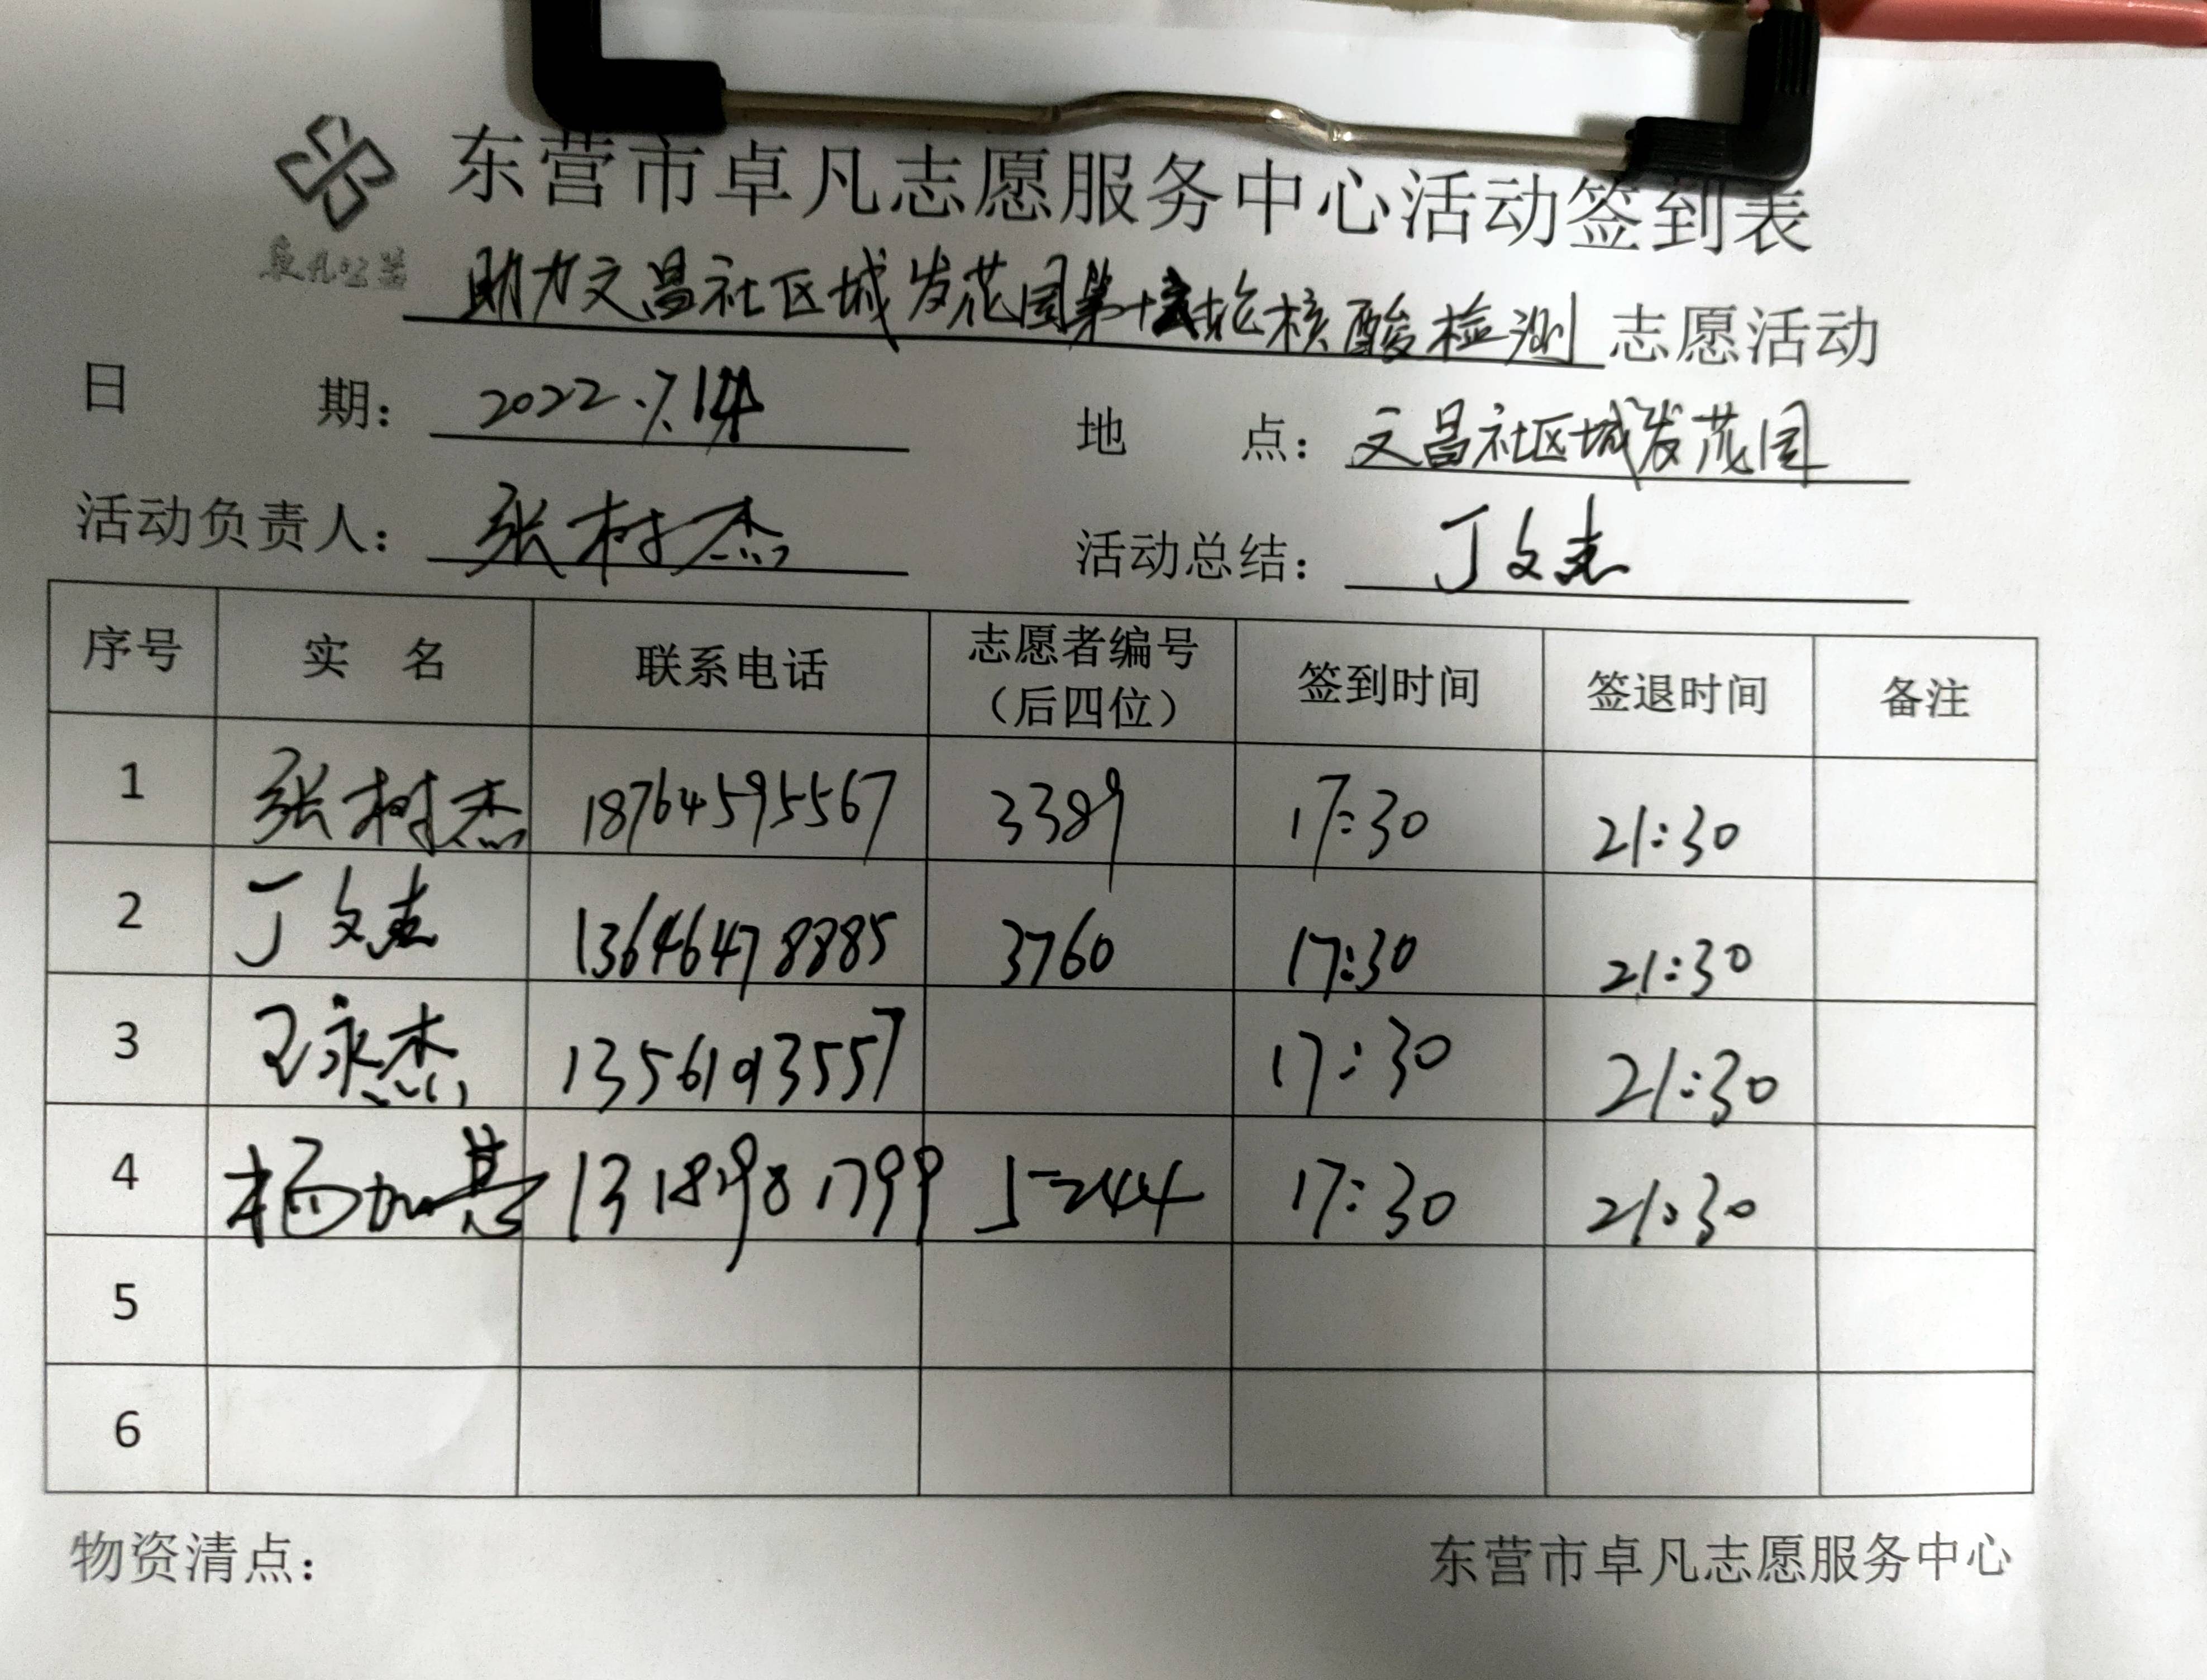 东营市卓凡志愿服务中心活动签到表
卓凡公益
助力文昌社区城发花园第十轮核酸检测 志愿活动
日 期： 2022.7.14 地 点： 文昌社区城发花园
活动负责人： 张树杰 活动总结： 丁文志
序号 实 名 联系电话 志愿者编号（后四位） 签到时间 签退时间 备注
1 张树杰 18764595567 3389 17:30 21:30
2 丁文志 13646478885 3760 17:30 21:30
3 王永杰 13561013557 17:30 21:30
4 杨加基 13189981799 5244 17:30 21:30
5
6
物资清点： 东营市卓凡志愿服务中心